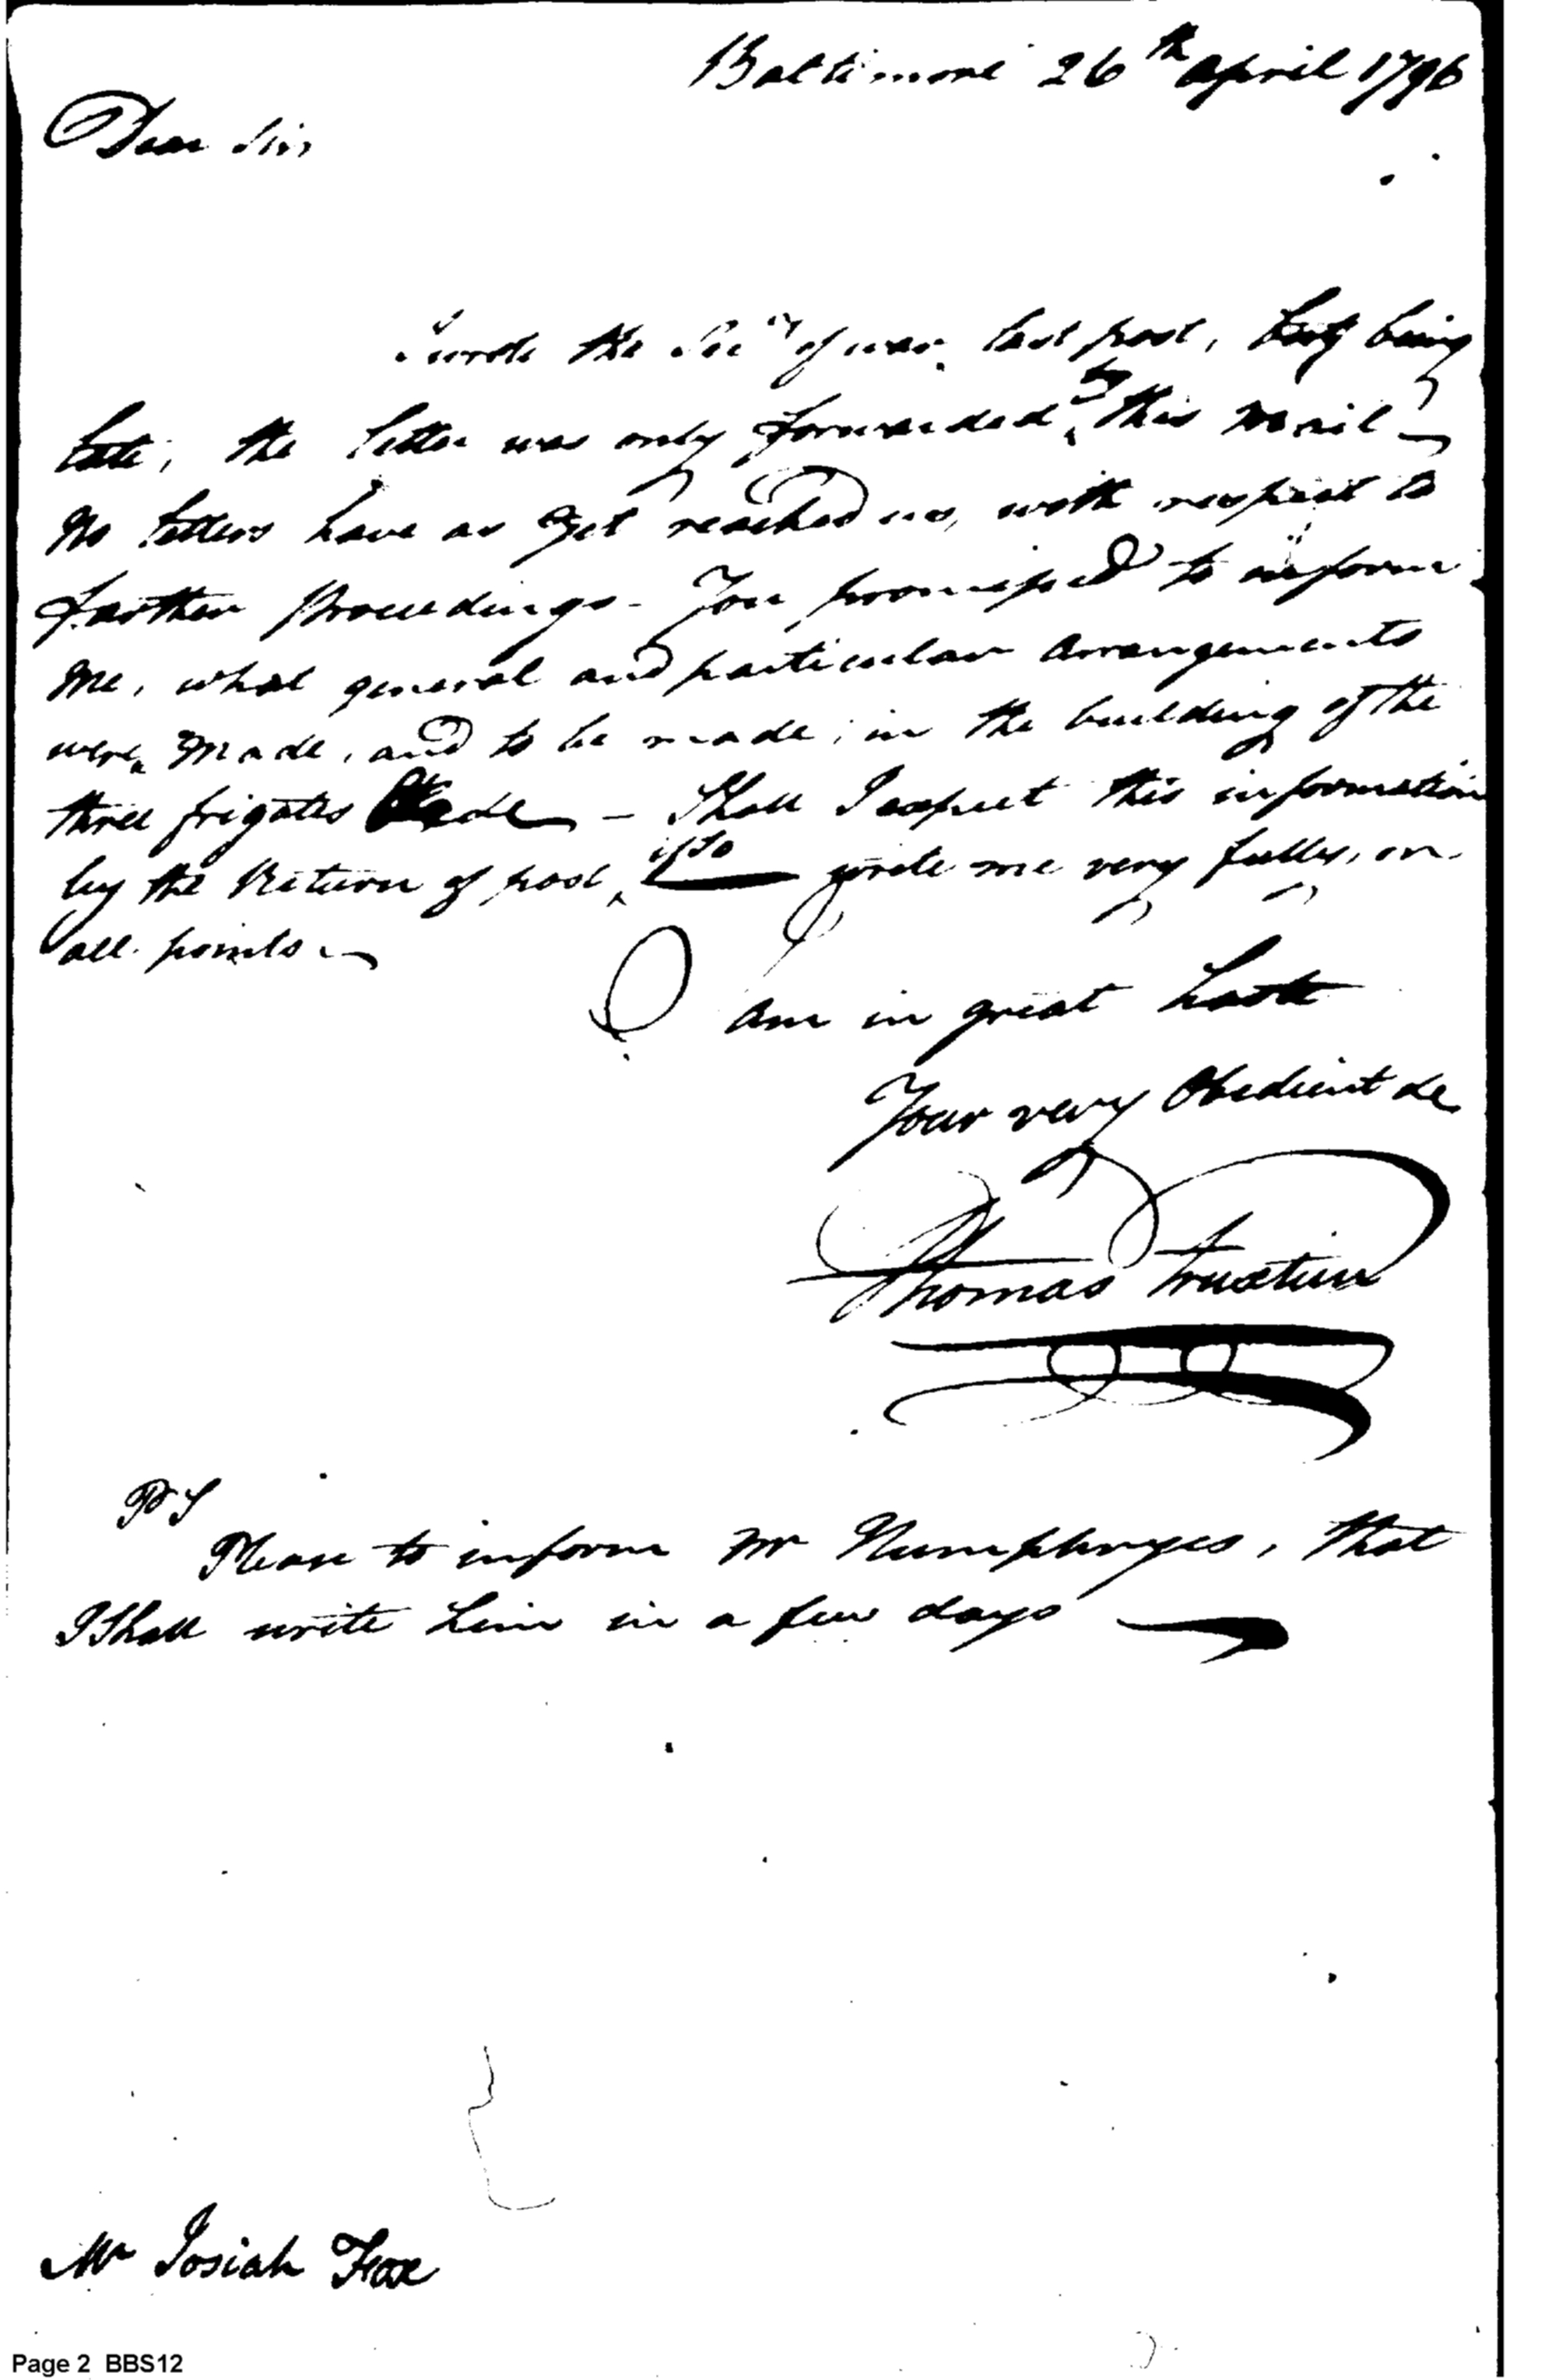 Baltimore 26th april 1796
Dear Sir,
I wrote the Secy of war, last post, but being
late, the letter was only forwarded, by this Mail —
No letters have as yet reached us, with respect to
farther Proceedings - You promised to inform
me, what general and particular Arrangements
were Made, and to be made, in the building of the
three frigates &c — Shall I expect this information
by the Return of post, if so write me very fully, on
all points. —
I am in great haste
Your very Obedient &c
Thomas Truxtun
PS
Please to inform Mr Humphreys, that
I Shall write him in a few days —
Mr Josiah Fox
Page 2 BBS12